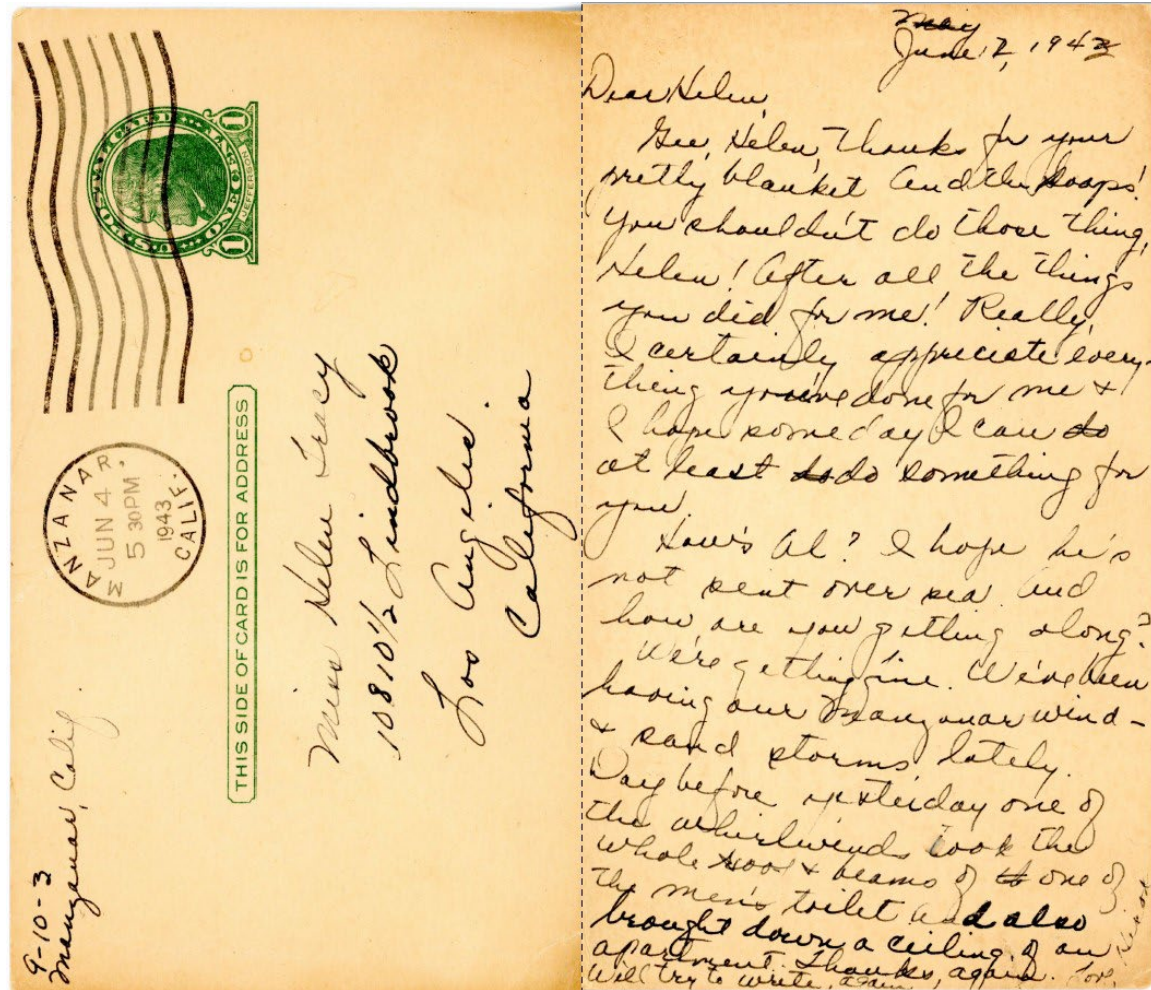 U.S. POSTAL CARD
ONE CENT
1 1
JEFFERSON
MANZANAR,
JUN 4
5 30 PM
1943
CALIF.
THIS SIDE OF CARD IS FOR ADDRESS
Miss Helen Tracy
10810 1/2 Lindbrook
Los Angeles.
California
9-10-3
Manzanar, Calif
May
June 2, 1943
Dear Helen,
Gee, Helen, thanks for your
pretty blanket and the soaps!
You shouldn't do those thing,
Helen! After all the things
you did for me! Really,
I certainly appreciate every-
thing you've done for me &
I hope someday I can do
at least do something for
you.
How's Al? I hope he's
not sent over sea. And
how are you getting along?
We're getting fine. We've been
having our Manzanar wind-
& sand storms lately.
Day before yesterday one of
the whirlwinds took the
whole roof & beams of one of
the men's toilet and also
brought down a ceiling of an
apartment. Thanks, again. Love,
Will try to write, again